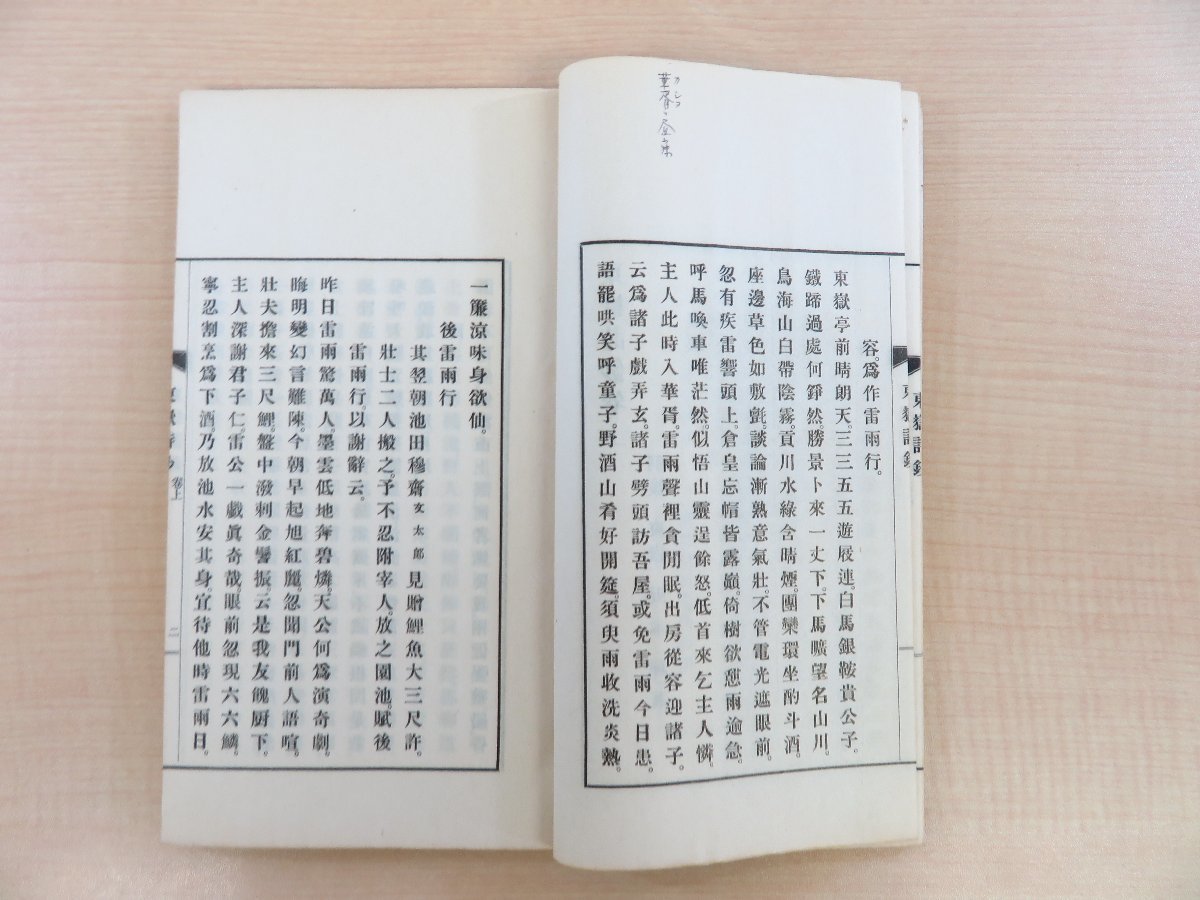 容。爲作雷雨行。
東嶽亭前晴朗天。三三五五遊屐連。白馬銀鞍貴公子。
鐵蹄過處何錚然。勝景卜來一丈下。下馬曠望名山川。
鳥海山白帶陰霧。貢川水綠含晴煙。團欒環坐酌斗酒。
座邊草色如敷氈。談論漸熟意氣壯。不管電光遮眼前。
忽有疾雷響頭上。倉皇忘帽皆露巓。倚樹欲憩雨逾急。
呼馬喚車唯茫然。似悟山靈逞餘怒。低首來乞主人憐。
主人此時入華胥。雷雨聲裡貪閒眠。出房從容迎諸子。
云爲諸子戲弄玄。諸子劈頭訪吾屋。或免雷雨今日患。
語罷哄笑呼童子。野酒山肴好開筵。須臾雨收洗炎熱。
一簾涼味身欲仙。
後雷雨行
其翌朝池田穆齋文太郎見贈鯉魚大三尺許。
壯士二人搬之。予不忍附宰人。放之園池。賦後
雷雨行。以謝辭云。
昨日雷雨驚萬人。墨雲低地奔碧燐。天公何爲演奇劇。
晦明變幻言難陳。今朝早起旭紅麗。忽聞門前人語喧。
壯夫擔來三尺鯉。盤中潑剌金鬐振。云是我友餽厨下。
主人深謝君子仁。雷公一戲眞奇哉。眼前忽現六六鱗。
寧忍割烹爲下酒。乃放池水安其身。宜待他時雷雨日。
卷上
二
華胥
カショ